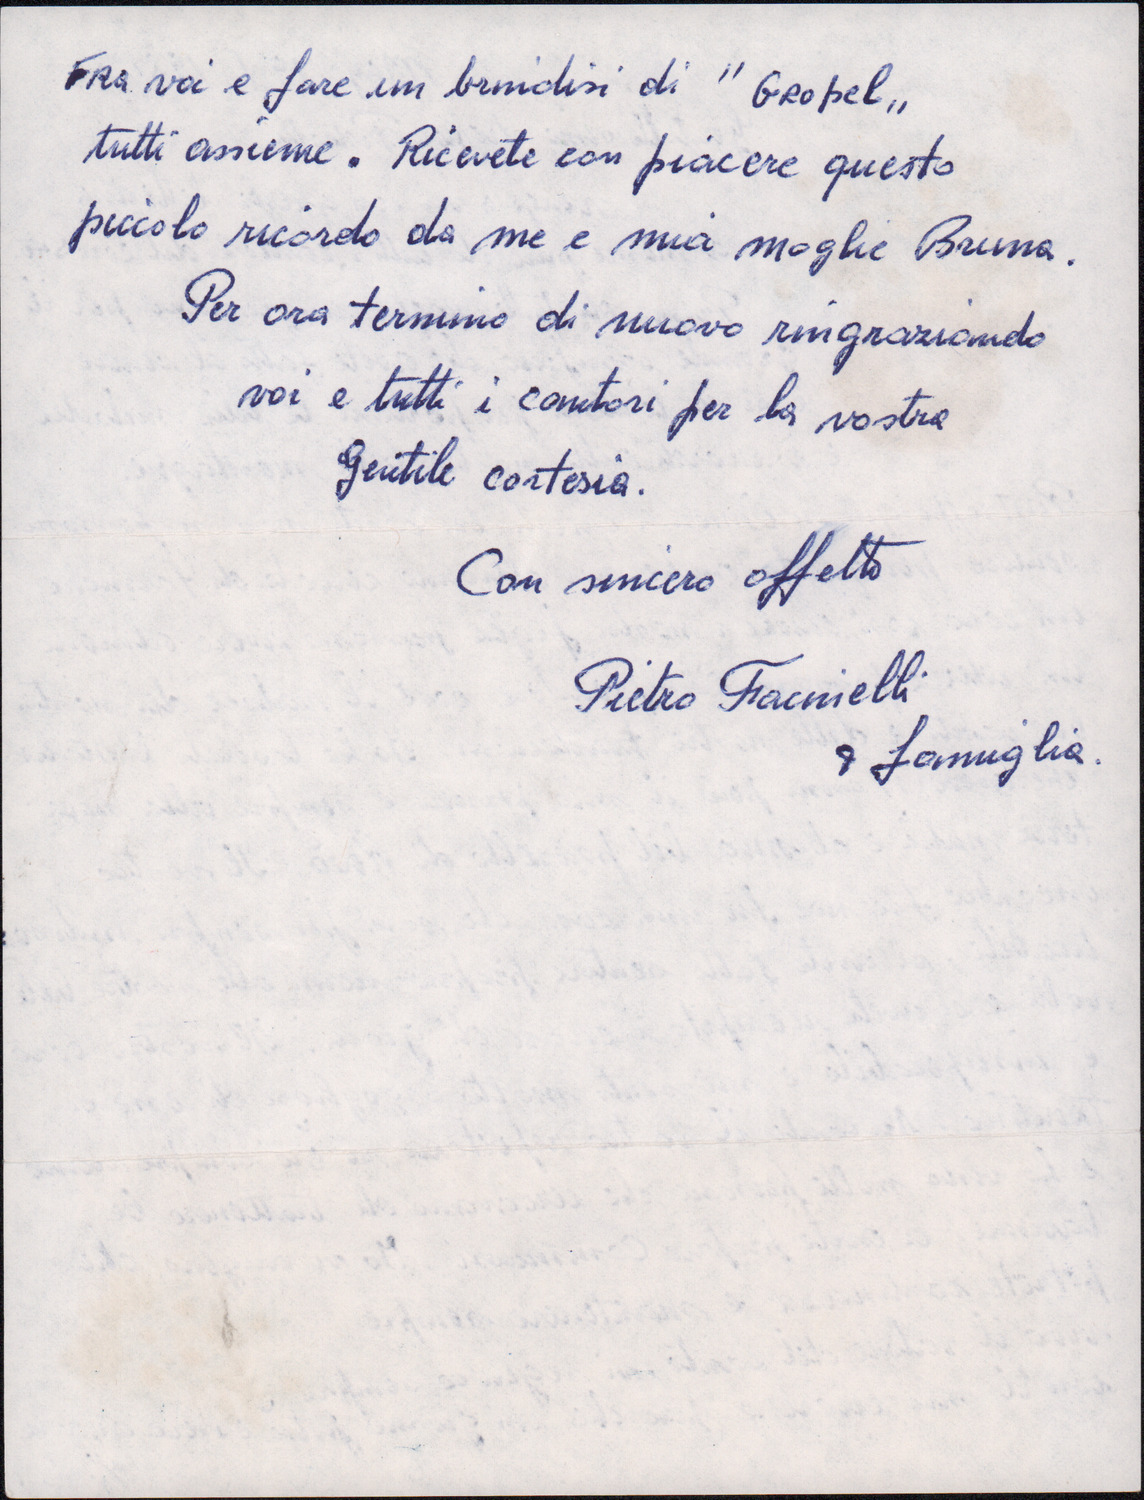 FRa voi e fare un brindisi di " Gropel „
tutti assieme. Ricevete con piacere questo
piccolo ricordo da me e mia moglie Bruna.
Per ora termino di nuovo ringraziando
voi e tutti i cantori per la vostra
Gentile cortesia.
Con sincero affetto
Pietro Facinelli
e famiglia.